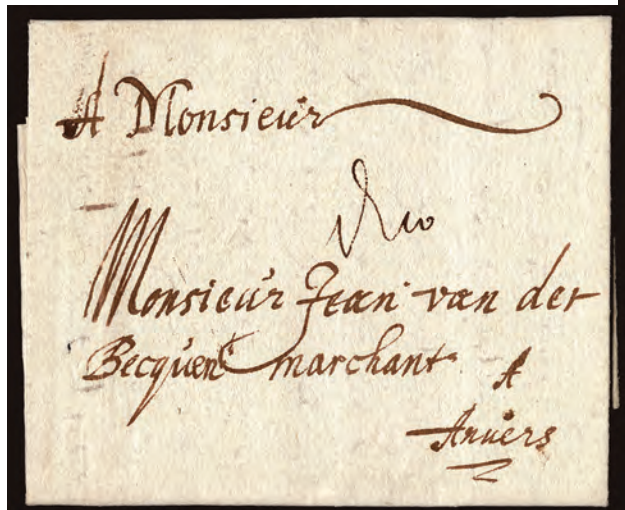 A Monsieur
Monsieur Jean van der
Becquen marchant A
Anuers